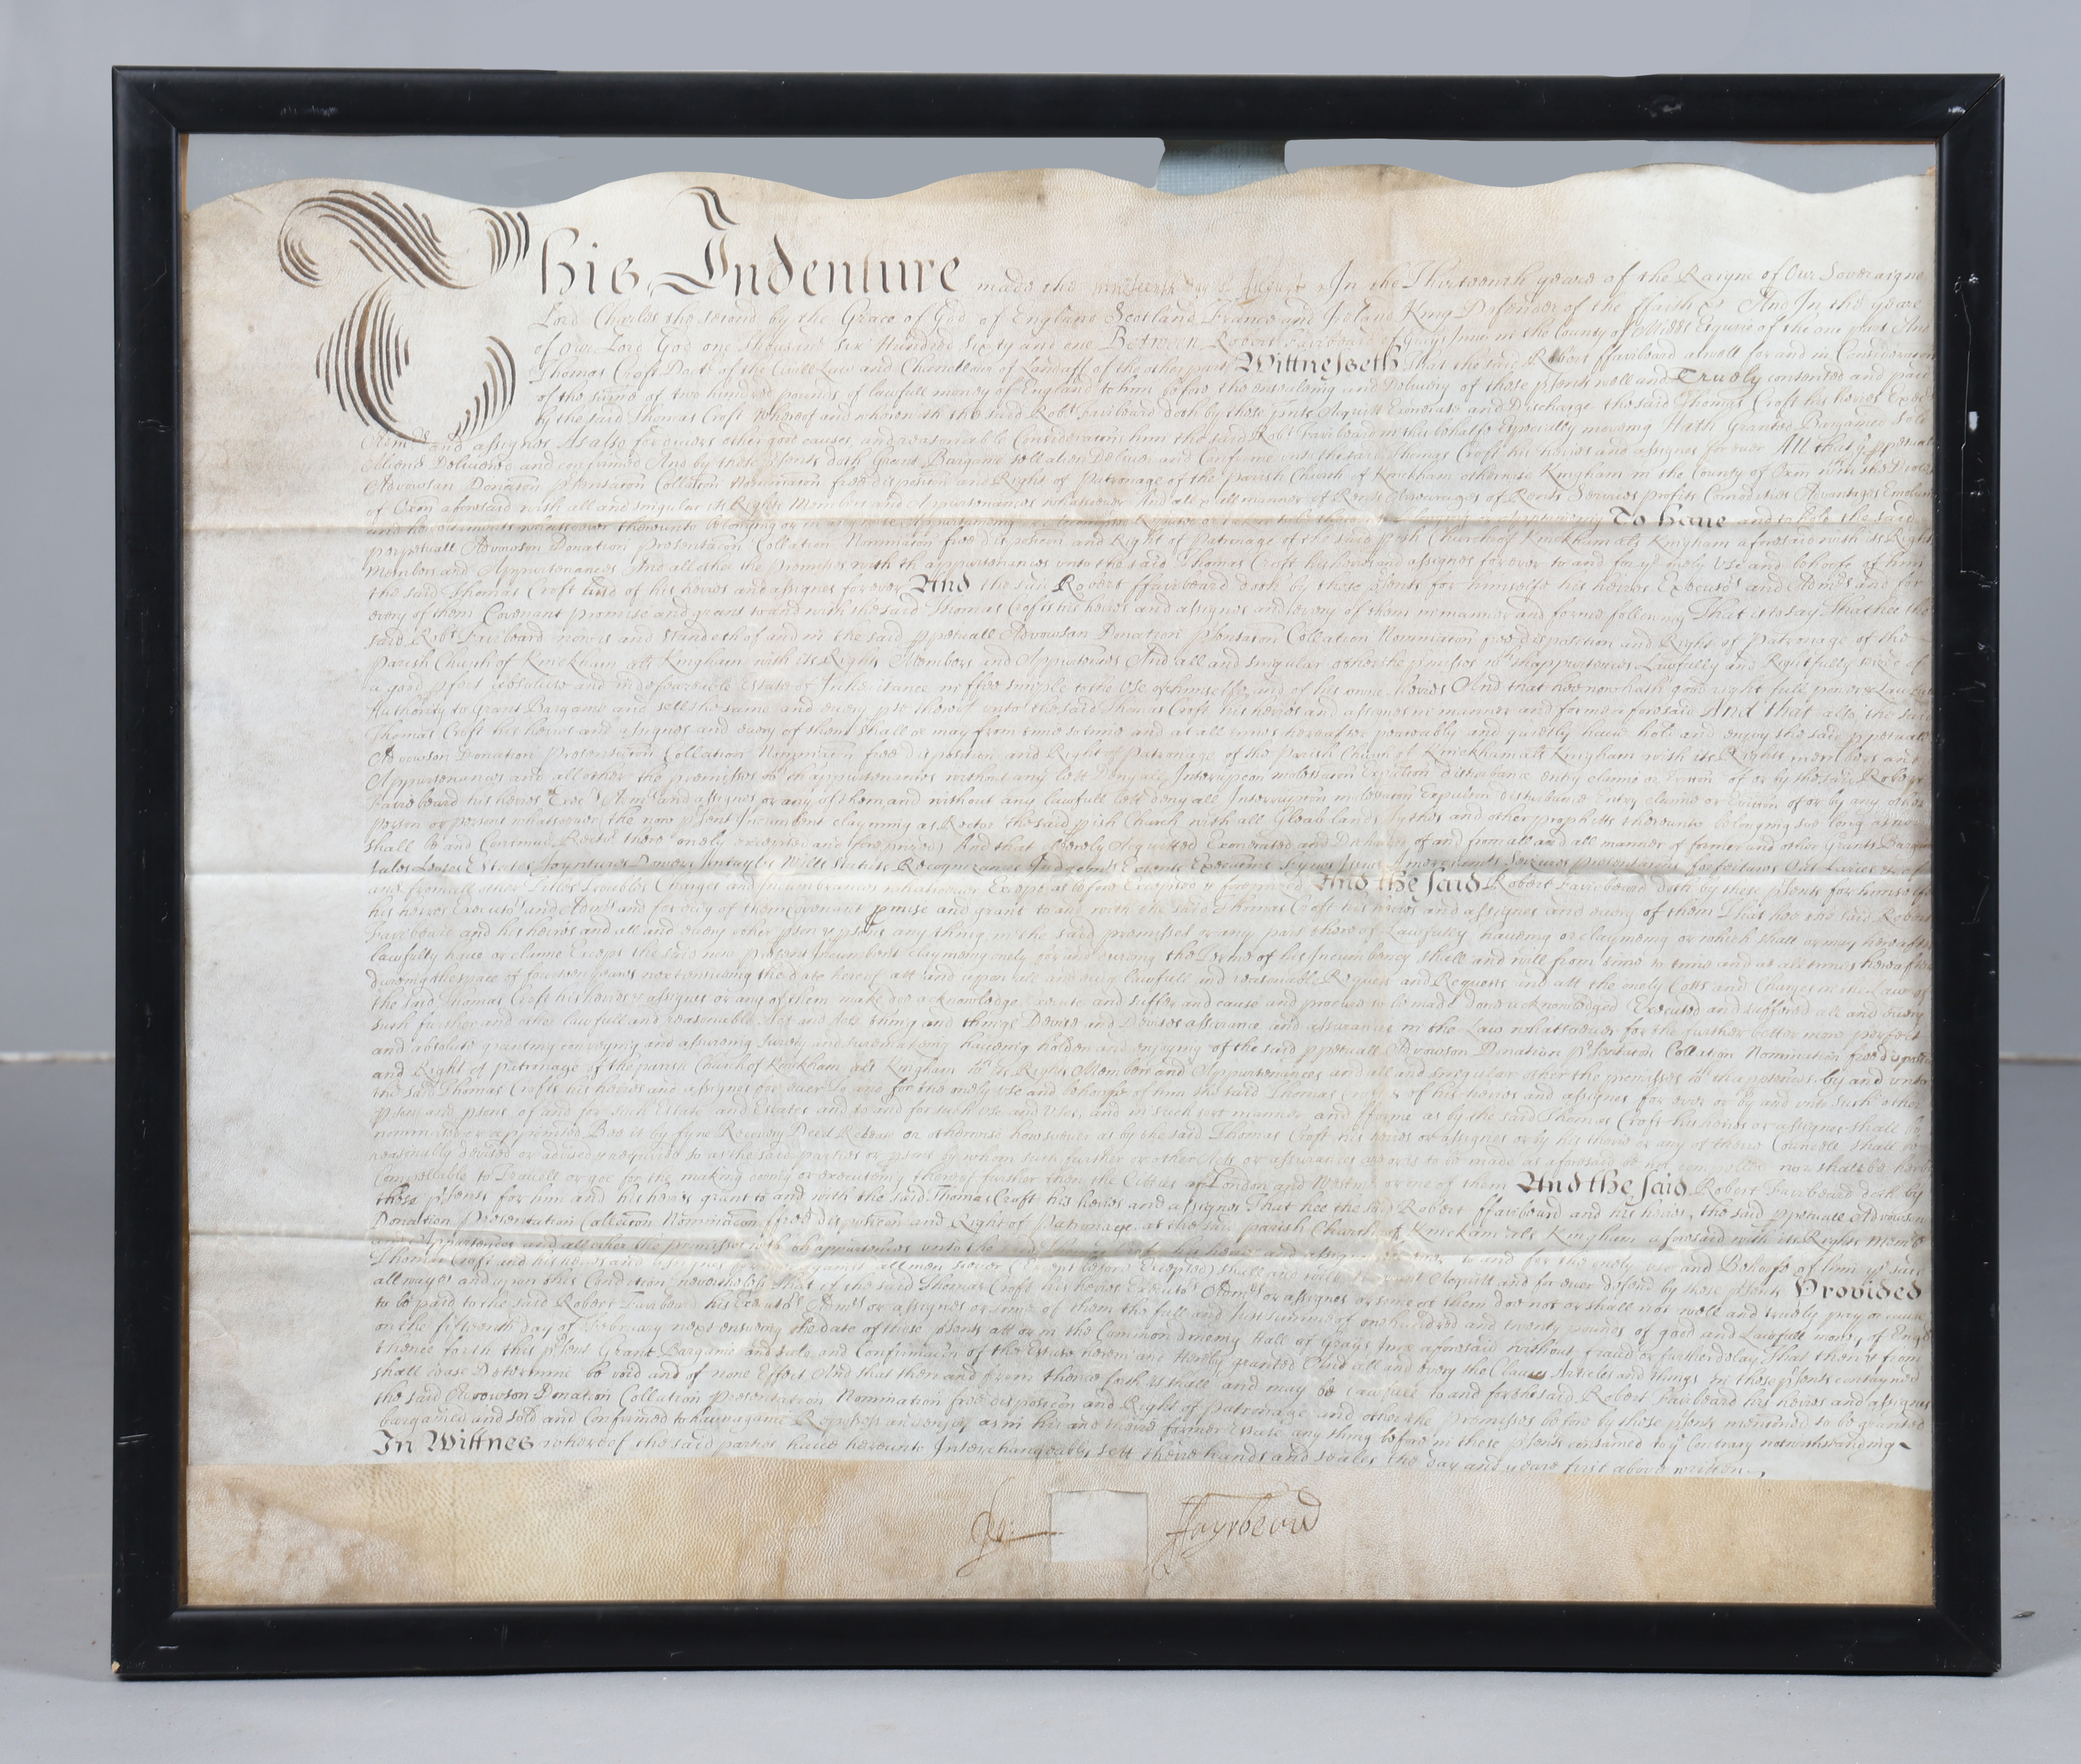 This Indenture made the nineteenth day of August In the Thirteenth yeare of the Raigne of Our Soveraigne
Lord Charles the second by the Grace of God of England Scotland France and Ireland King Defender of the ffaith & And In the yeare
of our Lord God one Thousand six Hundred Sixty and one Between Robert Fairebeard of Grays Inne in the County of Midds Esquire of the one part And
Thomas Croft Doctr of the Civill Law and Chancellour of Landaff of the other part Wittnesseth That the said Robert ffairebeard aswell for and in Consideracon
of the sume of two hundred pounds of lawfull money of England to him before the ensealeing and Delivery of these psents well and Truely contented and paid
by the said Thomas Croft Whereof and wherewith the said Robt Fairebeard doth by these psnts Acquitt Exonerate and Discharge the said Thomas Croft his heires
and assignes As also for divers other good causes and reasonable Consideracons him the said Robt Fairebeard in this behalfe Especially moveing Hath Granted Bargained sold
Aliened Delivered and confirmed And by these psents doth Graunt Bargaine sell alien Deliver and Confirme unto the said Thomas Croft his heires and assignes for ever All that ye ppetuall
Advowson Donacon psentacon Collation Nominacon free disposicon and Right of Patronage of the parish Church of Knickham otherwise Kingham in the County of Oxon
of Oxon aforesaid with all and singular its Rights Members and Appurtenances whatsoever And all & all manner of Rents Arrearages of Rents Services Profits Comodities Advantages
and hereditaments whatsoever thereunto belonging or in any wise Appertaining To have and to hold the said
perpetuall Advowson Donation Presentacon Collation Nominacon free disposicon and Right of Patronage of the said psh Church of Knickham als Kingham aforesaid with its Rights
Members and Appurtenances And all other the Premisses with th appurtenances unto the said Thomas Croft his heires and assignes for ever to and for ye onely Use and behoofe of him
the said Thomas Croft and of his heires and assignes for ever And the said Robert ffairebeard doth by these psents for himselfe his heires Executrs and Admrs and for
every of them Covenant promise and grant to and with the said Thomas Croft his heires and assignes and every of them in manner and forme following That is to say That hee the
said Robt Fairebeard now is and standeth of and in the said ppetuall Advowson Donation psentacon Collation Nominacon free disposition and Right of Patronage of the
Parish Church of Knickham als Kingham with its Rights Members and Appurtences And all and singular other the pmisses wth thappurtences Lawfully and Rightfully seized of
a good pfect absolute and indefeazeable Estate of Inheritance in ffee simple to the Use of himselfe and of his owne heires And that hee now hath good right full power & Lawfull
Authority to Grant Bargaine and sell the same and every pte thereof unto the said Thomas Croft his heires and assignes in manner and forme aforesaid And that also the said
Thomas Croft his heires and assignes and every of them shall or may from time to time and at all times hereafter peaceably and quietly have hold and enjoy the said ppetuall
Advowson Donation Presentacon Collation Nominacon free disposicon and Right of Patronage of the Parish Church of Knickham als Kingham with its Rights members and
Appurtenances and all other the premisses wth thappurtenances without any lett Denyall Interrupcon molestacon Eviction disturbance entry claime or Eviccon of or by the said Robert
Fairebeard his heires Execrs Admrs and assignes or any of them and without any lawfull lett denyall Interruption molestacon Expulsion disturbance Entry claime or Eviccon of or by any other
person or persons whatsoever the now psent Incumbent clayming as Rector the said pish Church with all Gleab lands Tythes and other proffitts thereunto belonging soe long as now
shall be and Continue Rector there onely excepted and foreprized And that clearely Acquitted Exonerated and Discharged of and from all and all manner of former and other Grants
sales Leases Estates Joyntures Dowers Intayles Wills Statutes Recognizances Judgemts Extents Execucons
and from all other Titles Troubles Charges and Incumbrances whatsoever Except as before Excepted & foreprized And the said Robert Fairebeard doth by these psents for himselfe
his heires Executrs and Admrs and for every of them Covenant pmise and grant to and with the said Thomas Croft his heires and assignes and every of them That hee the said Robert
Fairebeard and his heires and all and every other pson & psons any thing in the said premisses or any part thereof Lawfully haveing or claymeing or which shall or may hereafter
lawfully have or claime Except the said now present Incumbent claymeing onely for and during the Terme of his Incumbency shall and will from time to time and at all times hereafter
dureing the space of fourteen yeares next ensuing the date hereof att and upon the lawfull and reasonable Request and Requests and att the onely Costs and Charges in the Law of
the said Thomas Croft his heires & assignes or any of them make doe acknowledge Execute and suffer and cause and procure to be made done acknowledged Executed and suffered all and every
such further and other lawfull and reasonable Act and Acts thing and things Devise and Devises assurance and assurances in the Law whatsoever for the further better more perfect
and absolute granting conveying and assureing surety and suremakeing haveing holding and enjoying of the said ppetuall Advowson Donation psentacon Collation Nomination free disposicon
and Right of Patronage of the parish Church of Knickham als Kingham wth its Rights Members and Appurtenances and all and singular other the premisses wth thappurtences by and unto
the said Thomas Croft his heires and assignes for ever To and for the onely Use and behoofe of him the said Thomas Croft & of his heires and assignes for ever or by and unto such other
pson and psons of and for such Estate and Estates and to and for such Use and Uses, and in such sort manner and forme as by the said Thomas Croft his heires or assignes shall be
nominated or appointed Bee it by fyne Recovery Deed Release or otherwise howsoever as by the said Thomas Croft his heires or assignes or by his theire or any of theire Councell shall be
reasonably devised or advised & required so as the said parties or psons by whom such further or other Acts or assurances are or is to be made as aforesaid be not compelled nor shall be
Compellable to Travell or goe for the making or executing thereof further then the Citties of London and Westmr or one of them And the said Robert Fairebeard doth by
these psents for him and his heires grant to and with the said Thomas Croft his heires and assignes That hee the said Robert ffairebeard and his heires, the said ppetuall Advowson
Donation Presentation Collacon Nominacon ffree disposicon and Right of Patronage of the said parish Church of Knickam als Kingham aforesaid with its Rights Membrs
and Appurtences and all other the premisses with thappurtences unto the said Thomas Croft his heires and assignes for ever to and for the onely use and Behoofe of him ye said
Thomas Croft and his heires and assignes for ever against all men (Except before Excepted) shall and will Warrant Acquitt and for ever defend by these psents Provided
allwayes and upon this Condition nevertheless That if the said Thomas Croft his heires Executrs Admrs or assignes or some of them doe not or shall not well and truely pay or cause
to be paid to the said Robert Fairebeard his Executrs Admrs or assignes or some of them the full and Just summe of one hundred and twenty pounds of good and Lawfull money of Engld
on the fifteenth day of February next ensuing the date of these psents att or in the Common dineing Hall of Grays Inne aforesaid without fraud or further delay That then & from
thence forth this psent Grant Bargaine and sale and Confirmacon of the Estate herein and hereby granted And all and every the Clauses Articles and things in these psents contayned
shall cease Determine be void and of none Effect And that then and from thence forth it shall and may be Lawfull to and for the said Robert Fairebeard his heires and assignes
the said Advowson Donation Collation Presentation Nomination free disposicon and Right of Patronage and other the Premisses before by these psents mencioned to be granted
bargained and sold and Confirmed to have againe Repossess and enjoy as in his and theire former Estate any thing before in these psents contained to ye Contrary notwithstanding
In Wittnes whereof the said parties have hereunto Interchangeably sett theire hands and seales the day and yeare first above written
Ro: Fayrbeard